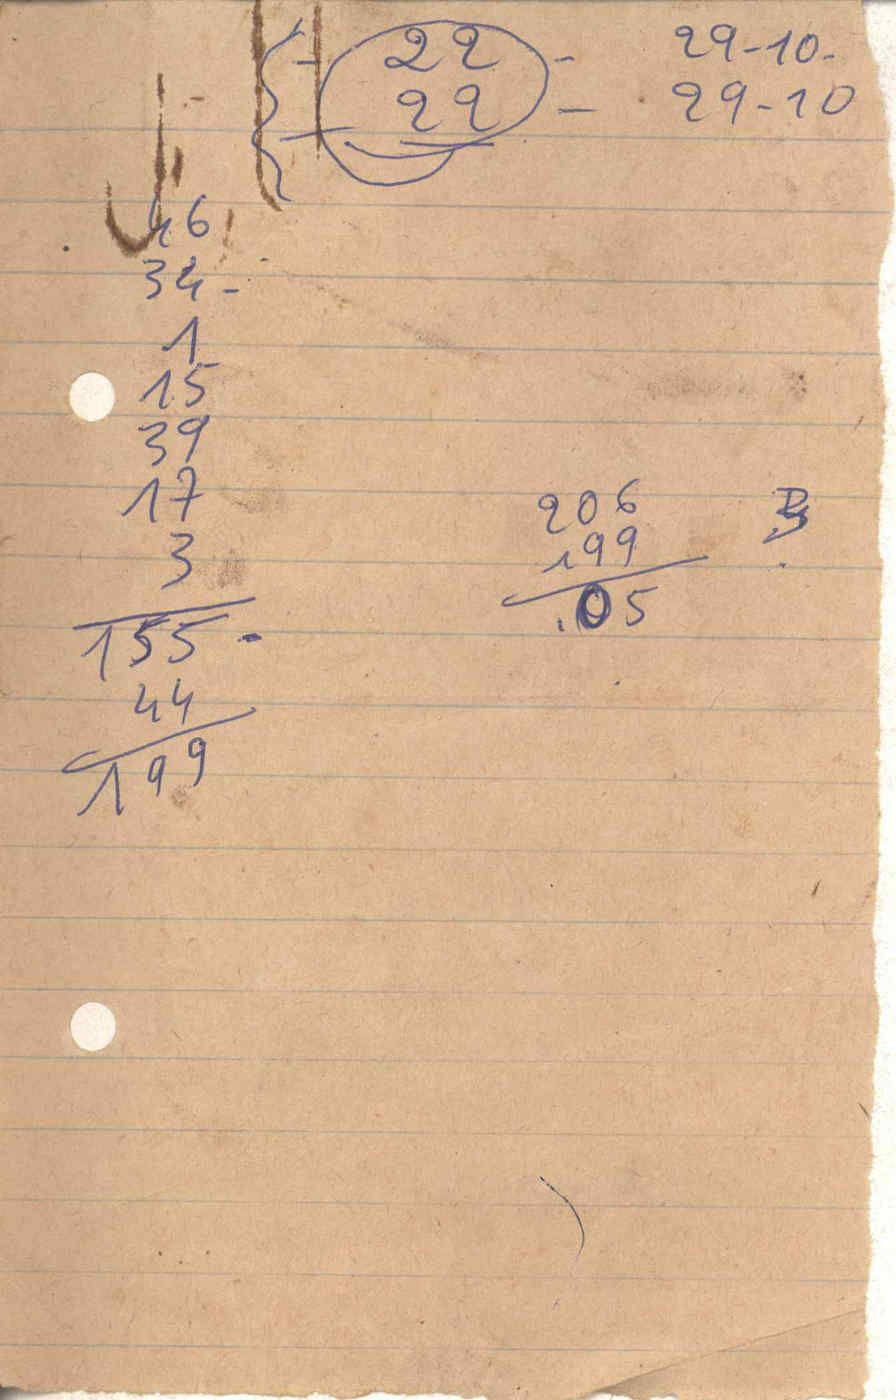 - 22 - 29-10.
- 22 - 29-10
46
34-
1
15
39
17
3
155-
44
199
206
199
.05